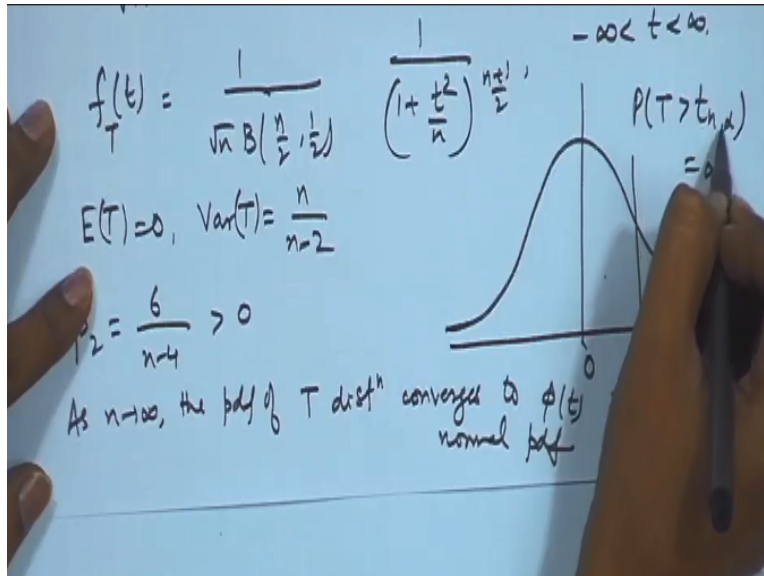 f_T(t) = 1 / (√n B(n/2, 1/2)) 1 / (1 + t²/n)^((n+1)/2) , -∞ < t < ∞.
P(T > t_{n,α})
=
E(T)=0, Var(T) = n / (n-2)
β₂ = 6 / (n-4) > 0
0
As n→∞, the pdf of T distⁿ converges to φ(t)
normal pdf